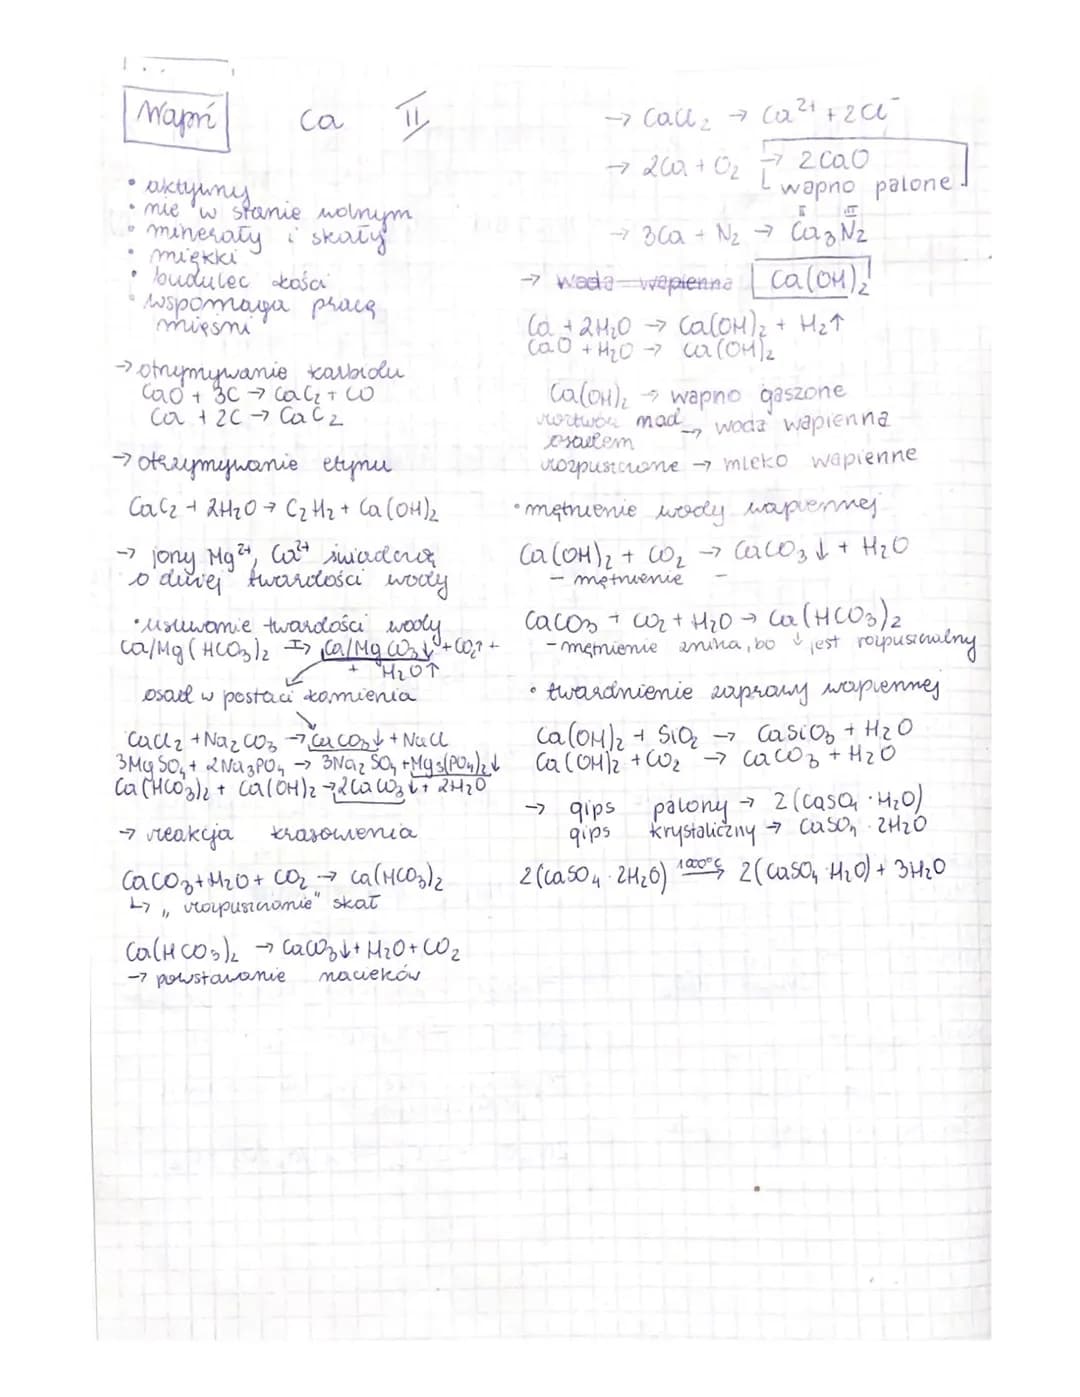 Wapń Ca II
• aktywny
• nie w stanie wolnym
• minerały i skały
• miękki
• budulec kości
• wspomaga pracę
mięśni
→ otrzymywanie karbidu
CaO + 3C → CaC₂ + CO
Ca + 2C → CaC₂
→ otrzymywanie etynu
CaC₂ + 2H₂O → C₂H₂ + Ca(OH)₂
→ jony Mg²⁺, Ca²⁺ świadczą
o dużej twardości wody
• usuwanie twardości wody
Ca/Mg(HCO₃)₂ T→ Ca/MgCO₃↓ + CO₂↑ +
+ H₂O↑
osad w postaci kamienia
CaCl₂ + Na₂CO₃ → CaCO₃↓ + NaCl
3MgSO₄ + 2Na₃PO₄ → 3Na₂SO₄ + Mg₃(PO₄)₂↓
Ca(HCO₃)₂ + Ca(OH)₂ → 2CaCO₃↓ + 2H₂O
→ reakcja krasowienia
CaCO₃ + H₂O + CO₂ → Ca(HCO₃)₂
↳ „rozpuszczanie" skał
Ca(HCO₃)₂ → CaCO₃↓ + H₂O + CO₂
→ powstawanie nacieków
→ CaCl₂ → Ca²⁺ + 2Cl⁻
→ 2Ca + O₂ → 2CaO
wapno palone
II III
→ 3Ca + N₂ → Ca₃N₂
→ woda wapienna Ca(OH)₂!
Ca + 2H₂O → Ca(OH)₂ + H₂↑
CaO + H₂O → Ca(OH)₂
Ca(OH)₂ → wapno gaszone
roztwór nad → woda wapienna
osadem
rozpuszczone → mleko wapienne
• mętnienie wody wapiennej
Ca(OH)₂ + CO₂ → CaCO₃↓ + H₂O
- mętnienie -
CaCO₃ + CO₂ + H₂O → Ca(HCO₃)₂
- mętnienie znika, bo ↓ jest rozpuszczalny
• twardnienie zaprawy wapiennej
Ca(OH)₂ + SiO₂ → CaSiO₃ + H₂O
Ca(OH)₂ + CO₂ → CaCO₃ + H₂O
→ gips palony → 2(CaSO₄ · H₂O)
gips krystaliczny → CaSO₄ · 2H₂O
2(CaSO₄ · 2H₂O) 100°C→ 2(CaSO₄ · H₂O) + 3H₂O